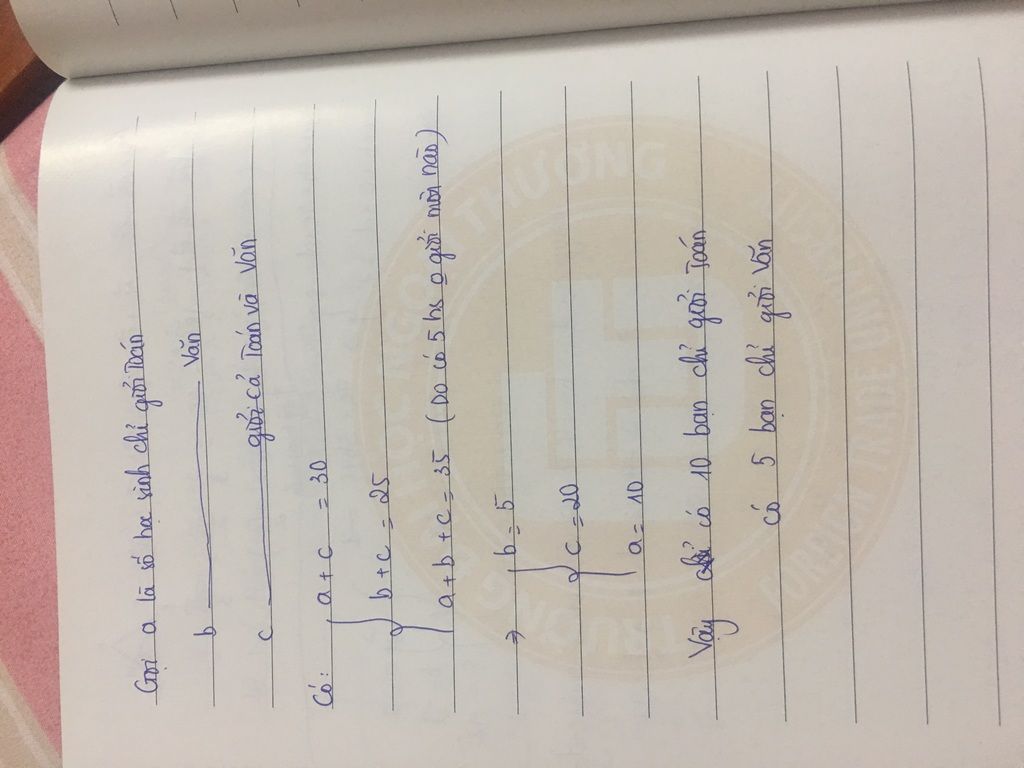 Gọi a là số học sinh chỉ giỏi Toán
b Văn
c giỏi cả Toán và Văn
Có: a + c = 30
b + c = 25
a + b + c = 35 (Do có 5 hs 0 giỏi môn nào)
⇒ b = 5
c = 20
a = 10
Vậy có 10 bạn chỉ giỏi Toán
có 5 bạn chỉ giỏi Văn
TRƯỜNG ĐẠI HỌC NGOẠI THƯƠNG
FOREIGN TRADE UNIVERSITY